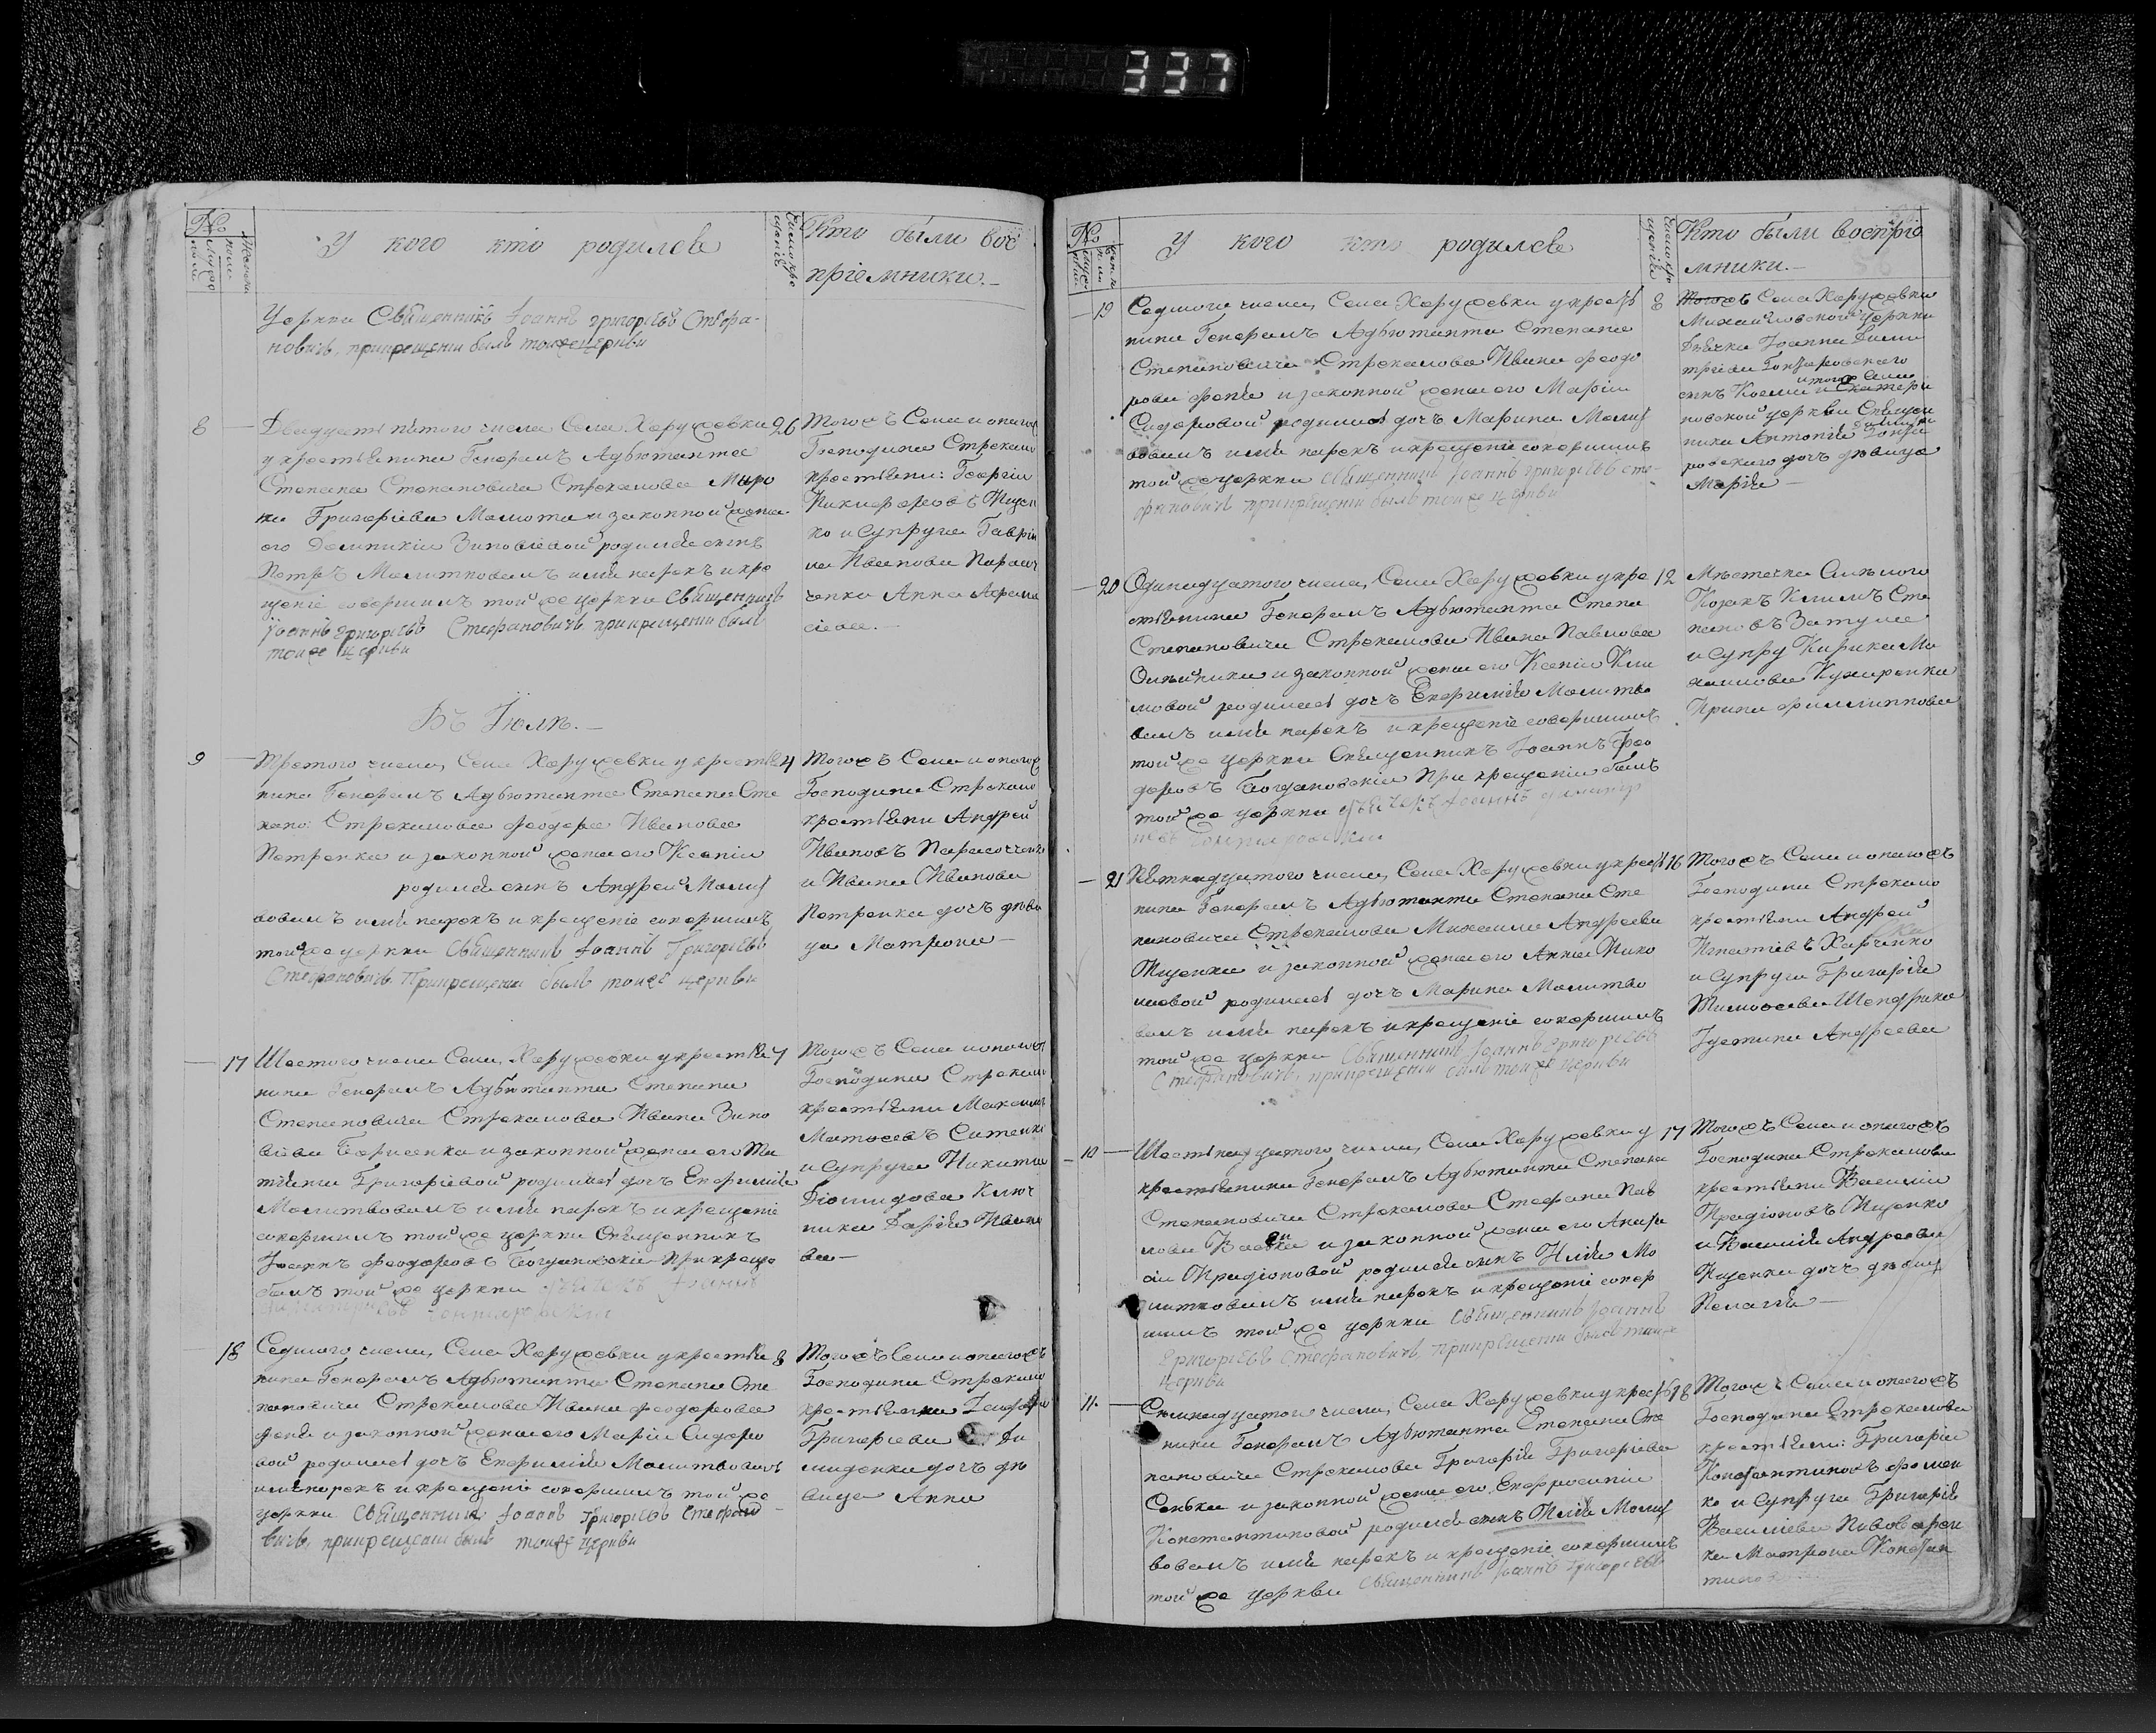 337
№
У кого кто родилсѧ
Кто были вос
пріемники.
Церкви Священникъ Іоаннъ Григорьевъ Стефа-
новичъ, прикрещеніи былъ тоижецеркви
8
Двадцять пятого числа Села Харужовки
26
у крестьянина Генералъ Адъютанта
Степана Степановича Стрекалова Миро
на Григоріева Малюта и законной жены
его Домникіи Зиновіевой родился сынъ
Петръ Молитвовалъ имя нарекъ и кре
щеніе совершилъ той же церкви Священникъ
Іоаннъ Григорьевъ Стефановичъ прикрещеніи былъ
тоиже церкви
Тогожъ Села и оногож
Господина Стрекало
крестьяни: Георгій
Никифоровъ Тищен
ко и Супруга Гаврии
ла Иванова
Анна Афана
сіева.
Въ Іюлѣ.
9
Третого числа, Села Харужовки у крестья
4
нина Генералъ Адъютанта Степана Сте
пано: Стрекалова Феодора Иванова
Петренка и законной жены его Ксеніи
родился сынъ Андрей Молит
вовалъ имя нарекъ и крещеніе совершилъ
той же церкви Священникъ Іоаннъ Григорьевъ
Стефановичъ. Прикрещеніи былъ тоиже церкви
Тогожъ Села и оногож
Господина Стрекало
крестьяни Андрей
Ивановъ
и Ивана Иванова
Петренка дочь дѣви
ца Матрона
17
Шестого числа Села, Харужовки у крестья
7
нина Генералъ Адъютанта Степана
Степановича Стрекалова Ивана Зино
віева Борисенка и законной жены его Та
тіяны Григоріевой родиласѧ дочь Евфимія
Молитвовалъ имя нарекъ и крещеніе
совершилъ той же церкви Священникъ
Іоаннъ Феодоровъ Богдановскій При креще
былъ той же церкви Дьячекъ Іоаннъ
Димитріевъ Гонтаровскій
Тогожъ Села и оногож
Господина Стрекало
крестьяни Максимъ
Матфеевъ Ситенко
и Супруга Никиты
Діомидова Ключ
ника Дарія Ивано
ва
18
Седмого числа, Села Харужовки у крестья
8
нина Генералъ Адъютанта Степана Сте
пановича Стрекалова Ивана Феодорова
и законной жены его Маріи Сидоро
вой родиласѧ дочь Евфимія Молитвовалъ
имя нарекъ и крещеніе совершилъ той же
церкви Священникъ Іоаннъ Григорьевъ Стефано
вичъ, прикрещеніи былъ тоиже церкви
Тогожъ Села и оногожъ
Господина Стрекало
крестьянка
Григоріева Ди
миденка дочь дѣ
вица Анна
№
У кого кто родилсѧ
Кто были воспріо
мники.
19
Седмого числа, Села Харужовки у кресть
8
нина Генералъ Адъютанта Степана
Степановича Стрекалова Ивана Феодо
рова и законной жены его Маріи
Сидоровой родиласѧ дочь Марина Молит
вовалъ имя нарекъ и крещеніе совершилъ
той же церкви Священникъ Іоаннъ Григорьевъ Сте-
фановичъ прикрещеніи былъ тоиже церкви
Тогожъ Села Харужовки
Михайловской Церкви
Дьячка Іоанна Дими
тріева Гонтаровского
сынъ Косма и того Села Екатери
новской церкви Священ
ника Антонія Гонта
ровского дочь дѣвица
Марія
20
Одинадцатого числа, Села Харужовки у кре
12
стьянина Генералъ Адъютанта Степа
Степановича Стрекалова Ивана Павлова
Олейника и законной жены его Ксеніи Кли
мовой родиласѧ дочь Евфимія Молитво
валъ имя нарекъ и крещеніе совершилъ
той же церкви Священникъ Іоаннъ Фео
доровъ Богдановскій При крещеніи былъ
той же церкви Дьячекъ Іоаннъ Димитр
іевъ Гонтаровскій
Мѣстечка Смѣлого
Козакъ Климъ Сте
пановъ Затула
и Супру Кирика Ма
Ирина Филиппова
21
Пятнадцатого числа, Села Харужовки у кресть
16
нина Генералъ Адъютанта Степана Сте
пановича Стрекалова Михаила Андреева
Тищенка и законной жены его Анна Нико
лаевой родиласѧ дочь Марина Молитво
валъ имя нарекъ и крещеніе совершилъ
той же церкви Священникъ Іоаннъ Григорьевъ
Стефановичъ, прикрещеніи былъ тоиже церкви
Тогожъ Села и оногожъ
Господина Стрекало
крестьяни Андрей
Игнатіевъ Харченко
и Супруга Григорія
Тимофеева
Іустина Андреева
10
Шестнадцатого числа, Села Харужовки у
17
крестьянина Генералъ Адъютанта Степана
Степановича Стрекалова Стефана Пав
лова и законной жены его Анаста
сіи Иродіоновой родился сынъ Илія Мо
литвовалъ имя нарекъ и крещеніе совер
шилъ той же церкви Священникъ Іоаннъ
Григорьевъ Стефановичъ, прикрещеніи былъ тоиже
церкви
Тогожъ Села и оногожъ
Господина Стрекалова
крестьяни Василій
Иродіоновъ Тищенко
и Василія Андреева
Тищенка дочь дѣвиц
Пелагія
11.
Семнадцатого числа, Села Харужовки у кресть
18
нина Генералъ Адъютанта Степана Сте
пановича Стрекалова Григорія Григоріева
Сенька и законной жены его Евфросиніи
Константиновой родился сынъ Илія Молит
вовалъ имя нарекъ и крещеніе совершилъ
той же церкви Священникъ Іоаннъ Григорьевъ
Тогожъ Села и оногожъ
Господина Стрекалова
крестьяни: Григорій
Константиновъ Фомен
ко и Супруга Григорія
Василіева
ка Матрона Констан
тинова